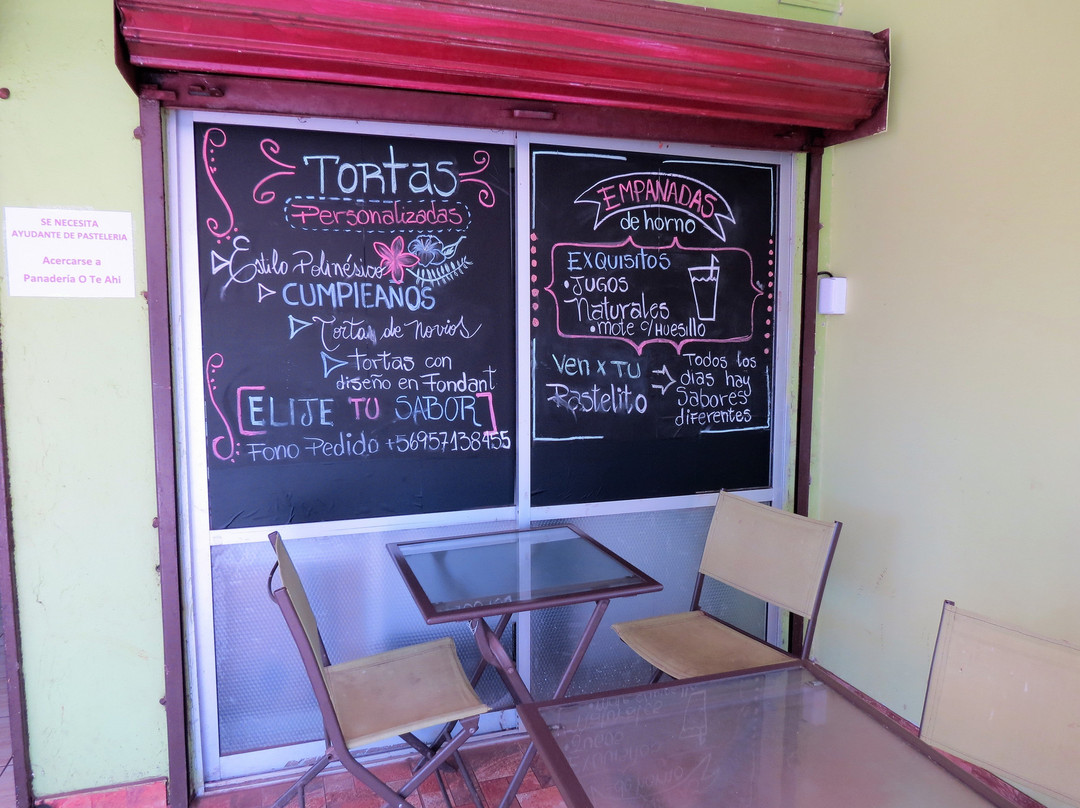 SE NECESITA
AYUDANTE DE PASTELERIA
Acercarse a
Panadería O Te Ahi
Tortas
Personalizadas
Estilo Polinésico
CUMPLEANOS
Torta de novios
tortas con
diseño en Fondant
ELIJE TU SABOR
Fono Pedido +56957138455
EMPANADAS
de horno
EXQUISITOS
•JUGOS
Naturales
•mote c/Huesillo
Ven x TU
Pastelito
Todos los
días hay
Sabores
diferentes